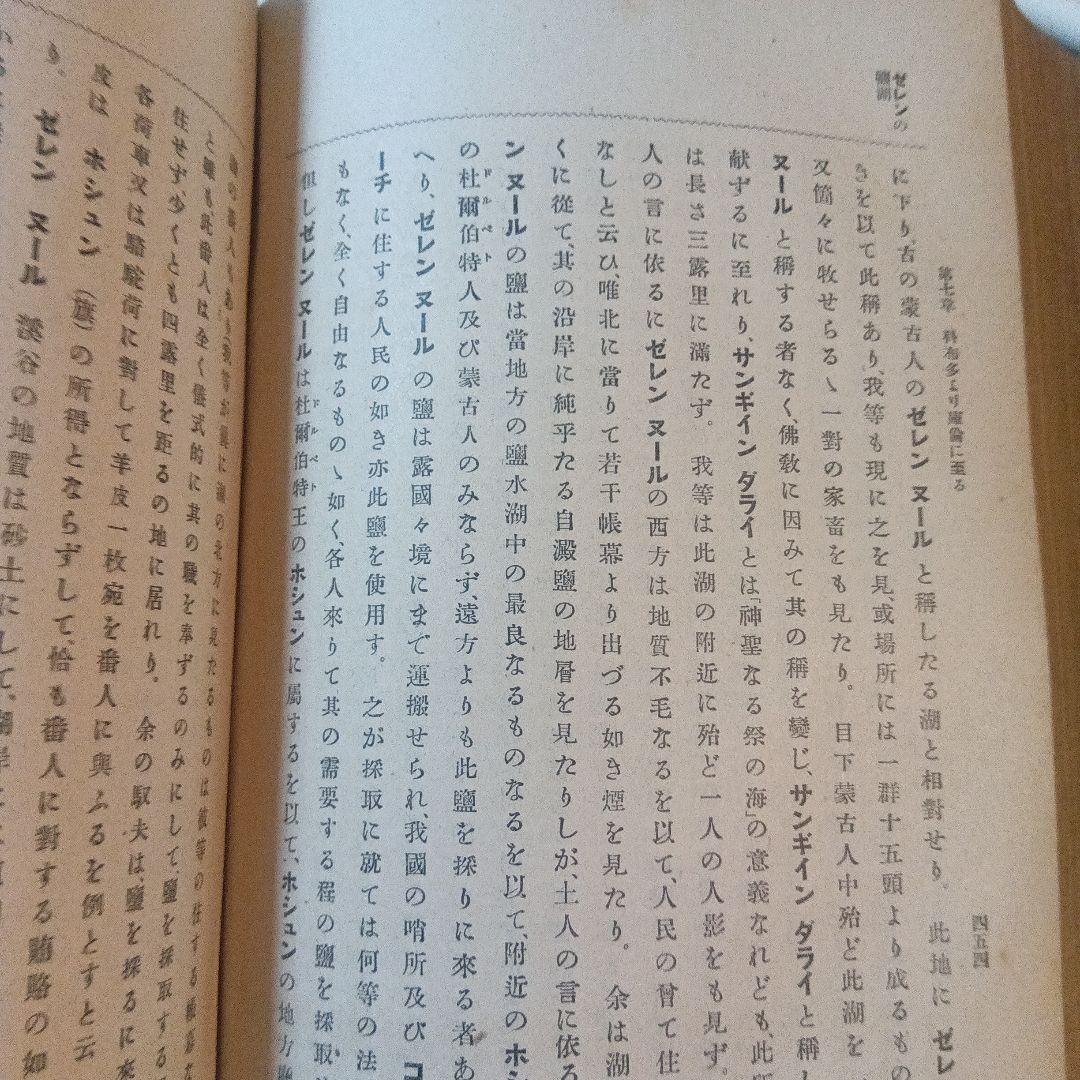 ゼレンの
鹽湖
第七章　科布多より庫倫に至る
四五四
に下り、古の蒙古人のゼレン ヌールと稱したる湖と相對せり。此地にゼレ
きを以て此稱あり、我等も現に之を見、或場所には一群十五頭より成るもの
又箇々に牧せらるゝ一對の家畜をも見たり。目下蒙古人中殆ど此湖を
ヌールと稱する者なく佛教に因みて其の稱を變じ、サンギイン ダライと稱
献ずるに至れり、サンギイン ダライとは「神聖なる祭の海」の意義なれども、此
は長さ三露里に滿たず。我等は此湖の附近に殆ど一人の人影をも見ず。
人の言に依るにゼレン ヌールの西方は地質不毛なるを以て、人民の曾て住
なしと云ひ、唯北に當りて若干帳幕より出づる如き煙を見たり。余は湖
くに從て、其の沿岸に純乎たる自澱鹽の地層を見たりしが、土人の言に依る
ン ヌールの鹽は當地方の鹽水湖中の最良なるものなるを以て、附近のホシ
の杜爾伯特人及び蒙古人のみならず、遠方よりも此鹽を採りに來る者あ
ドルベト
へり、ゼレン ヌールの鹽は露國々境にまで運搬せられ、我國の哨所及びコ
ーチに住する人民の如き亦此鹽を使用す。之が採取に就ては何等の法
もなく、全く自由なるものゝ如く、各人來りて其の需要する程の鹽を採取
但しゼレン ヌールは杜爾伯特王のホシュンに屬するを以て、ホシュンの地方
ドルベト
と雖も、此番人は全く儀式的に其の職を奉ずるのみにして、鹽を採取する
住せず、少くとも四露里を距るの地に居れり。余の馭夫は、鹽を採るに來
各荷車又は駱駝荷に對して羊皮一枚宛を番人に與ふるを例とすと云
皮はホシュン（旗）の所得とならずして、恰も番人に對する賄賂の如
り。ゼレン ヌール溪谷の地質は砂土にして、湖岸